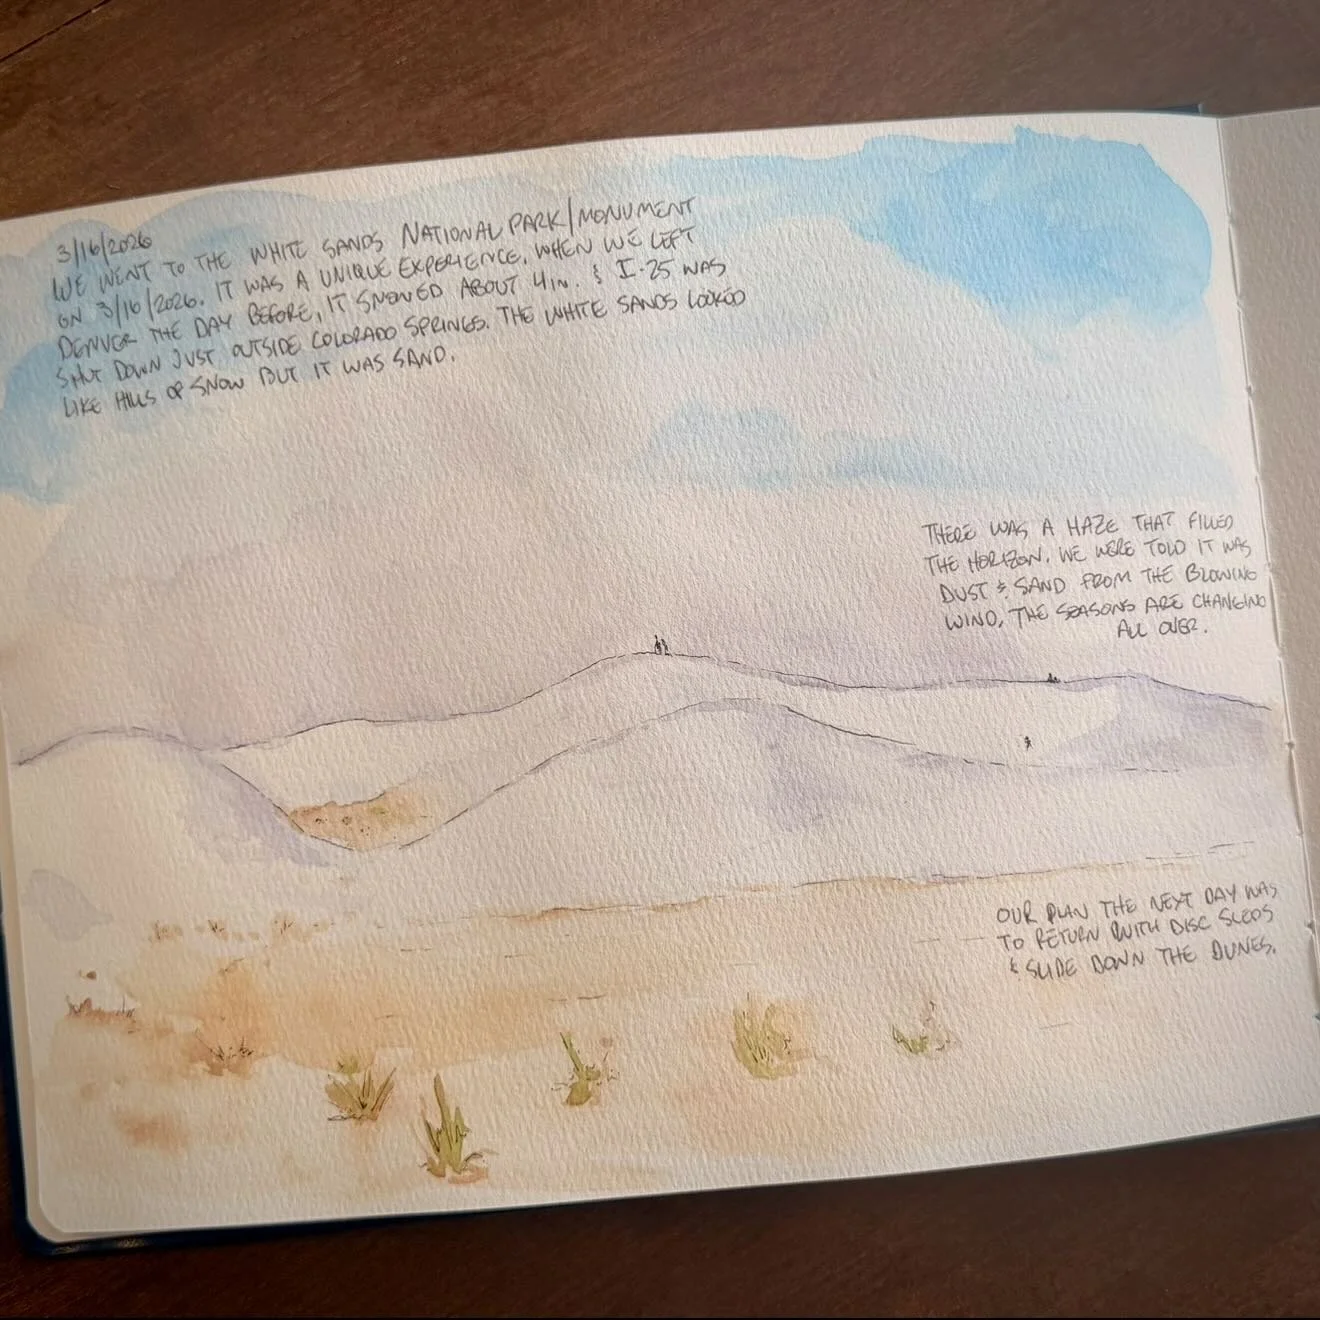 3/16/2026
WE WENT TO THE WHITE SANDS NATIONAL PARK/MONUMENT
ON 3/16/2026. IT WAS A UNIQUE EXPERIENCE. WHEN WE LEFT
DENVER THE DAY BEFORE, IT SNOWED ABOUT 4IN. & I-25 WAS
SHUT DOWN JUST OUTSIDE COLORADO SPRINGS. THE WHITE SANDS LOOKED
LIKE HILLS OF SNOW BUT IT WAS SAND.
THERE WAS A HAZE THAT FILLED
THE HORIZON. WE WERE TOLD IT WAS
DUST & SAND FROM THE BLOWING
WIND, THE SEASONS ARE CHANGING
ALL OVER.
OUR PLAN THE NEXT DAY WAS
TO RETURN WITH DISC SLEDS
& SLIDE DOWN THE DUNES.